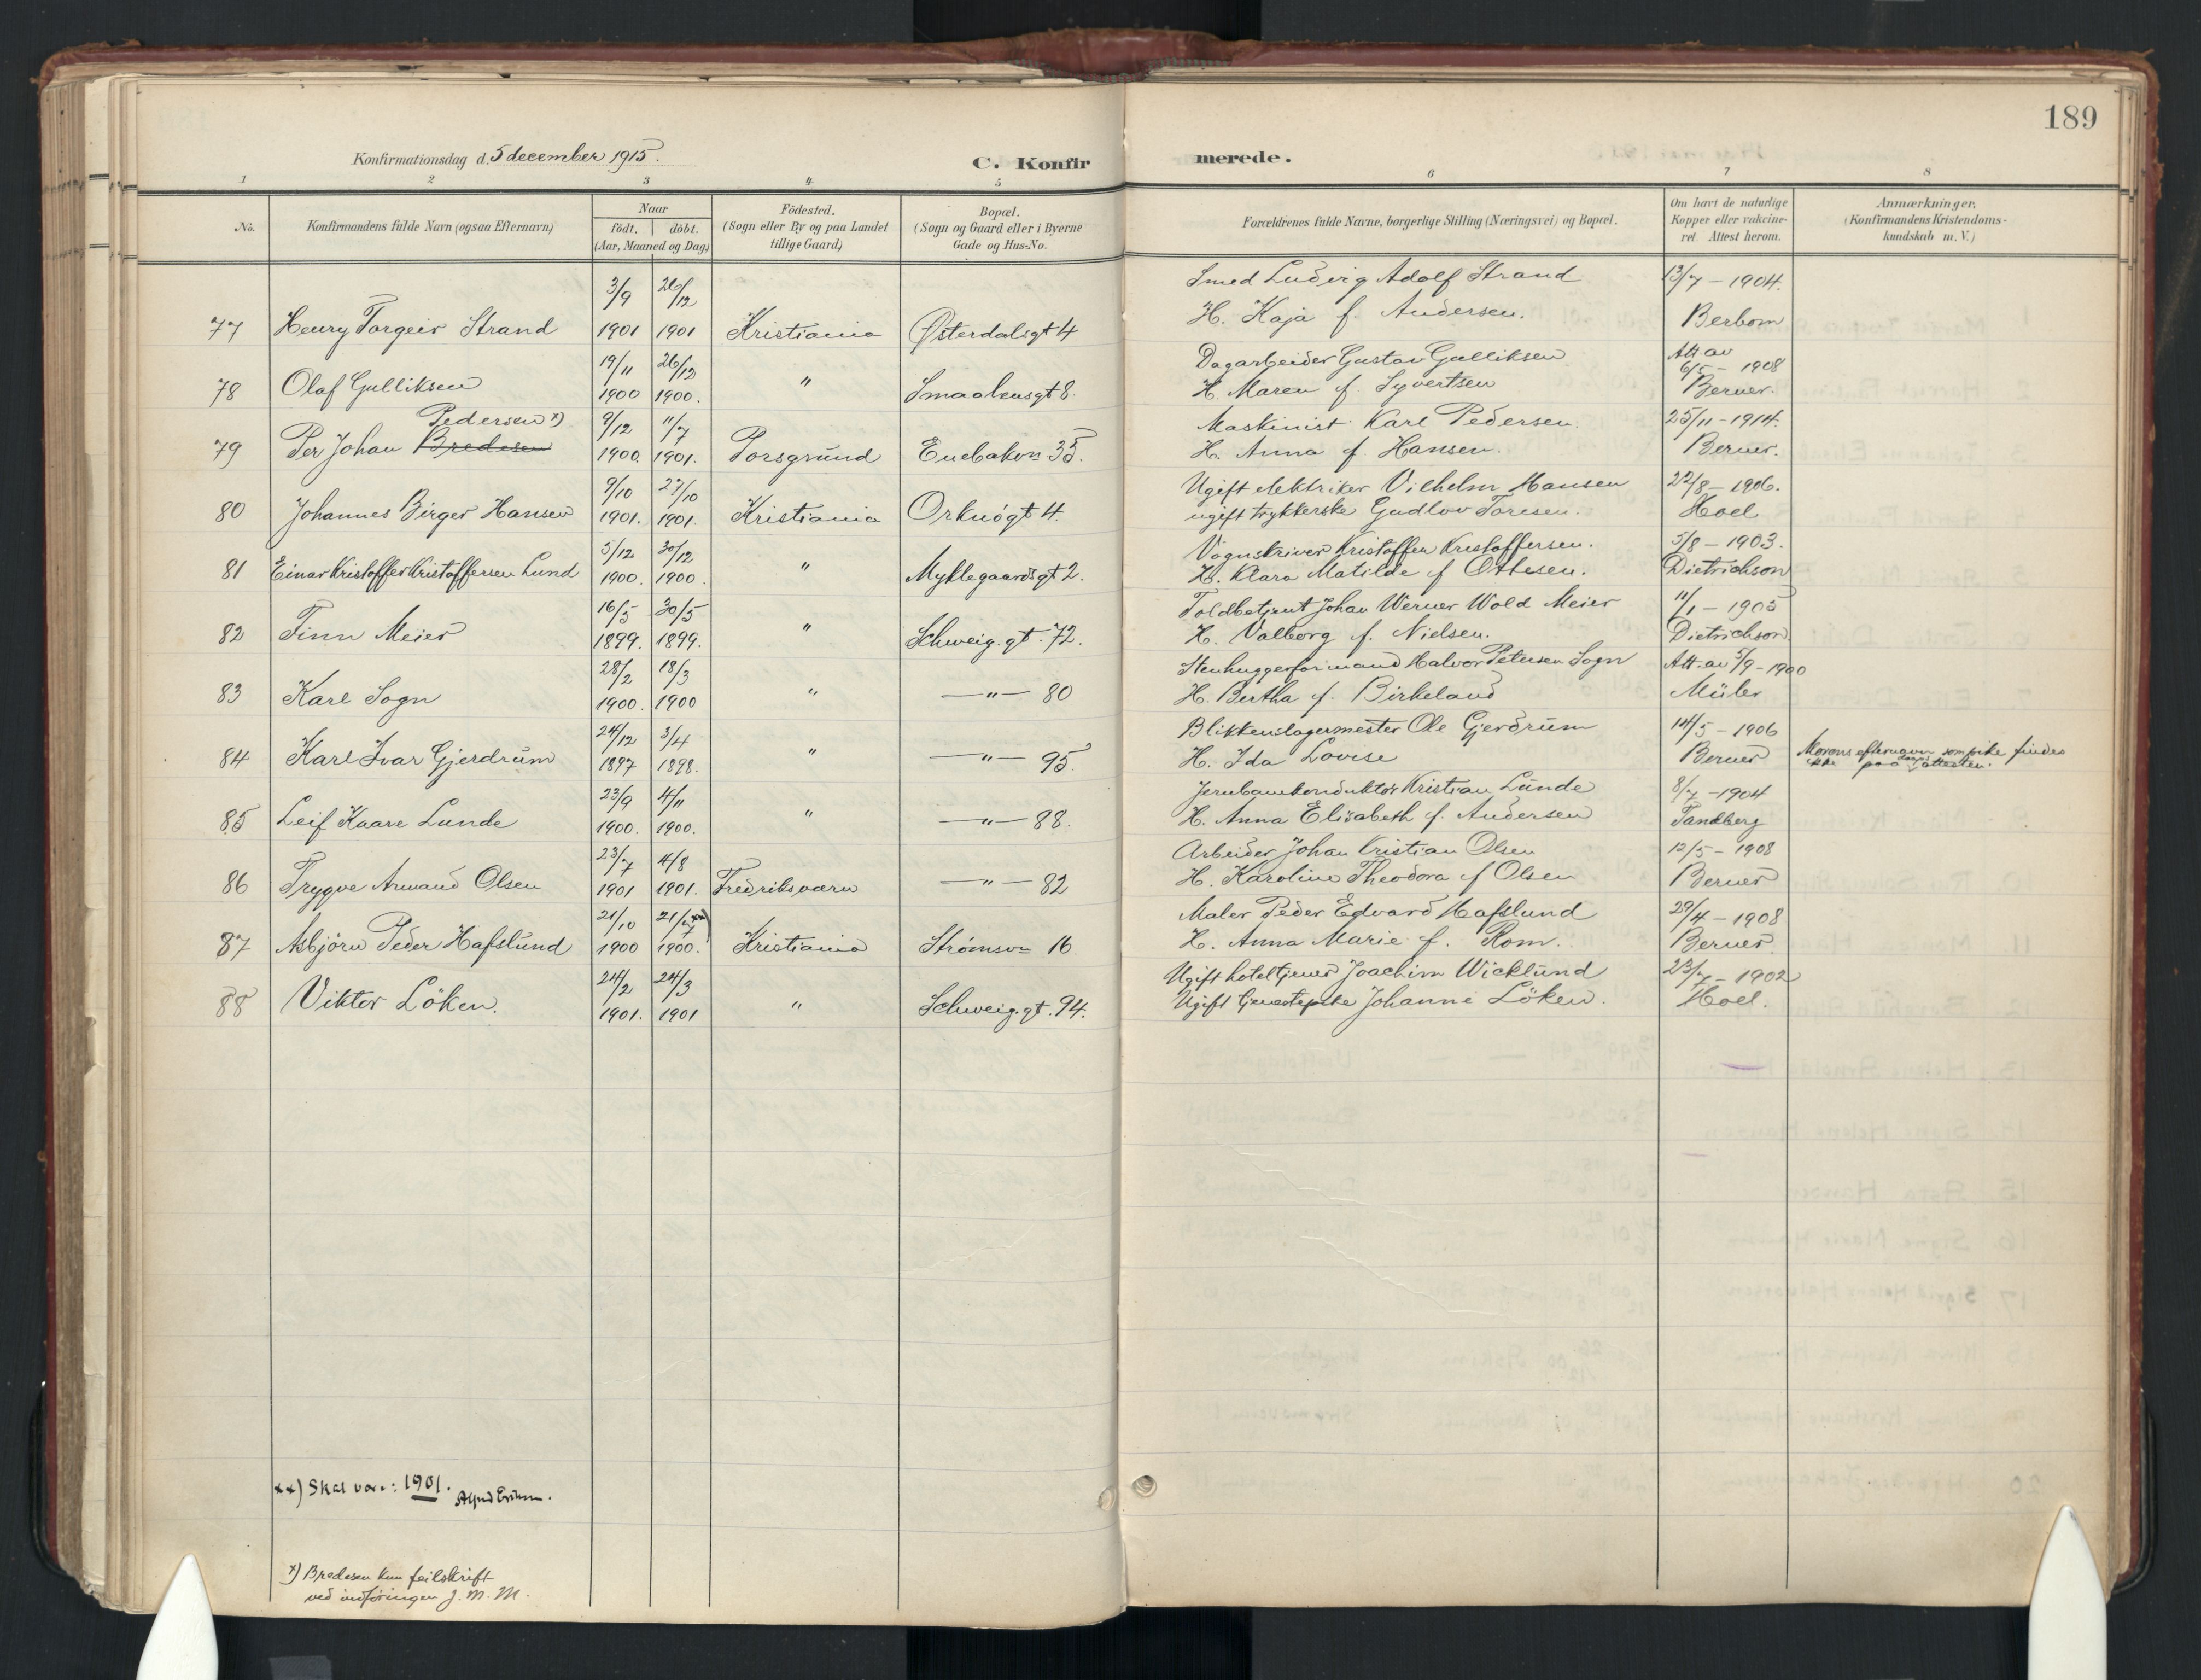 189
Konfirmationsdag d. 5 december 1915.
C. Konfir merede.
1 2 3 4 5 6 7 8
No. Konfirmandens fulde Navn (ogsaa Efternavn) Naar födt. döbt. (Aar, Maaned og Dag) Födested. (Sogn eller By og paa Landet tillige Gaard) Bopæl. (Sogn og Gaard eller i Byerne Gade og Hus-No. Forældrenes fulde Navne, borgerlige Stilling (Næringsvei) og Bopæl. Om havt de naturlige Kopper eller vakcineret. Attest herom. Anmærkninger. (Konfirmandens Kristendomskundskab m. V.)
3/9 26/12 Smed Ludvig Adolf Strand 13/7 - 1904.
77 Henry Torgeir Strand 1901 1901 Kristiania Østerdalsgt 4 H. Kaja f. Andersen. Berbom
19/11 26/12 Dagarbeider Gustav Gulliksen Att av 6/5 - 1908
78 Olaf Gulliksen 1900 1900. " Smaalensgt 8. H. Maren f. Syvertsen Berner.
Pedersen x) 9/12 11/7 Maskinist Karl Pedersen. 25/11 - 1914.
79 Per Johan Bredesen 1900. 1901. Porsgrund Enebakvn 35. H. Anna f. Hansen. Berner.
9/10 27/10 Ugift elektriker Vilhelm Hansen 22/8 - 1906.
80 Johannes Birger Hansen 1901. 1901. Kristiania Orknögt 4. ugift trykkerske Gudlov Toresen. Hoel
5/12 30/12 Vognskriver Kristoffer Kristoffersen. 5/8 - 1903.
81 Einar Kristoffer Kristoffersen Lund 1900. 1900. " Myklegaardsgt 2. H. Klara Matilde f Ottesen. Dietrichson
16/5 30/5 Toldbetjent Johan Werner Wold Meier 11/1 - 1905
82 Finn Meier 1899. 1899. " Schweig. gt. 72. H. Valborg f. Nielsen. Dietrichson
28/2 18/3 Stenhuggerformand Halvor Petersen Sogn Att. av 5/9 - 1900
83 Karl Sogn 1900. 1900 " — " — 80 H. Bertha f. Birkeland Müller
24/12 3/4 Blikkenslagermester Ole Gjerdrum 14/5 - 1906
84 Karl Ivar Gjerdrum 1897 1898. " — " — 95. H. Ida Lovise Berner Morens efternavn som pike findes
ikke paa daapsattesten.
23/9 4/11 Jernbankonduktör Kristian Lunde 8/7 - 1904
85 Leif Kaare Lunde 1900. 1900. " — " — 88. H. Anna Elisabeth f. Andersen Tandberg
23/7 4/8 Arbeider Johan Kristian Olsen 12/5 - 1908
86 Trygve Armand Olsen 1901 1901. Fredriksværn — " — 82 H. Karoline Theodora f Olsen Berner
21/10 21/7 xx) Maler Peder Edvard Hafslund 29/4 - 1908
87 Asbjörn Peder Hafslund 1900 1900. Kristiania Strømsvn 16 H. Anna Marie f. Rom. Berner
24/2 24/3 Ugift hoteltjener Joachim Wicklund 23/7 - 1902
88 Viktor Löken. 1901. 1901 " Schweig. gt. 94. Ugift tjenestepike Johanne Löken. Hoel.
xx) Skal være: 1901.
x) Bredesen kun feilskrift
ved indföringen J. M. M.